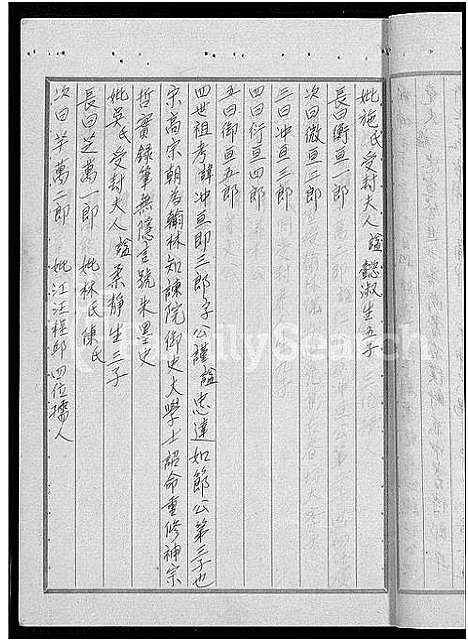 妣施氏受封夫人諡懿淑生五子
長曰衡亘一郎
次曰微亘二郎
三曰沖亘三郎
四曰衍亘四郎
五曰御亘五郎
四世祖考諱沖亘即三郎字公謹諡忠達如節公第三子也
宋高宗朝為翰林知諫院御史大學士詔命重修神宗
哲實錄筆無隱 號朱墨史
妣吳氏受封夫人諡柔靜生三子
長曰芝萬一郎 妣林氏陳氏
次曰芋萬二郎 妣江汪程邱四位孺人
FamilySearch